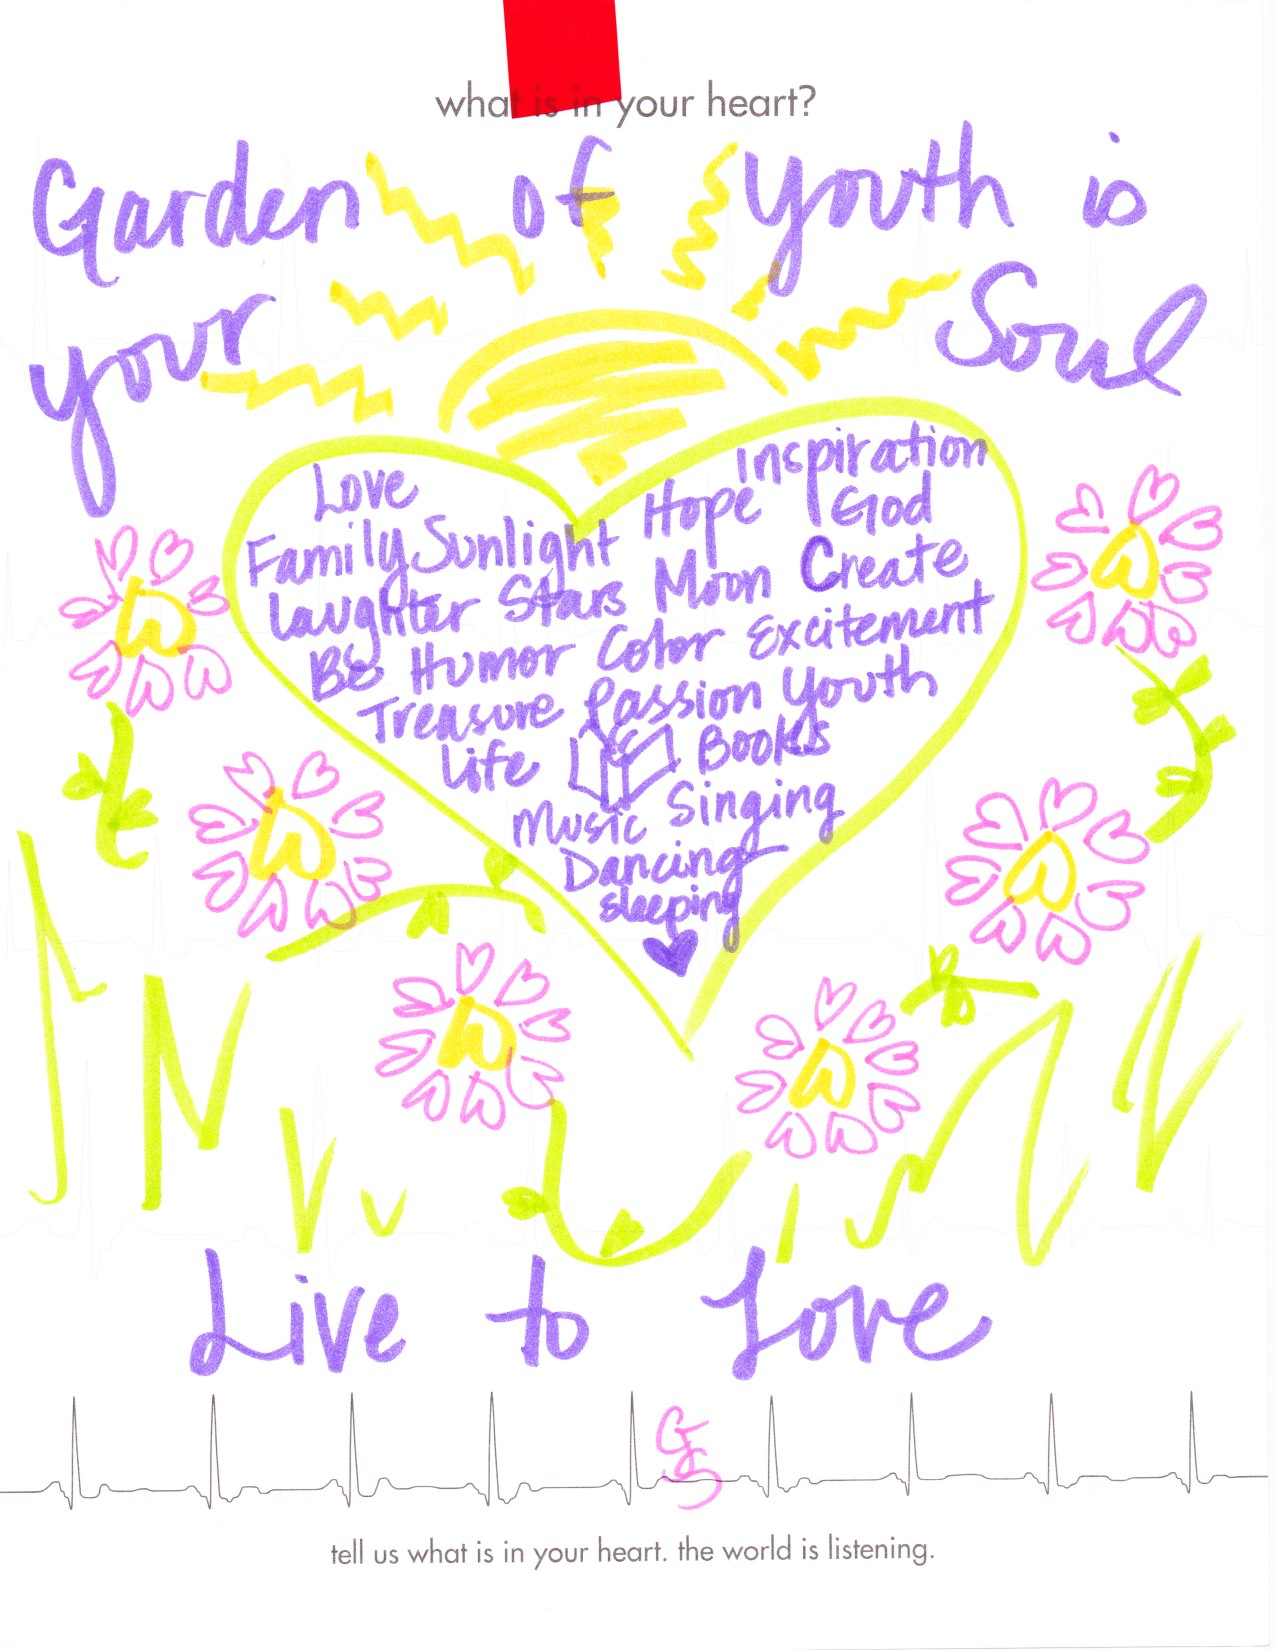 what is in your heart?
Garden of Youth is
your Soul
Love Inspiration
Family Sunlight Hope God
Laughter Stars Moon Create
Be Humor Color Excitement
Treasure Passion Youth
Life Books
Music Singing
Dancing
sleeping
Live to Love
tell us what is in your heart. the world is listening.